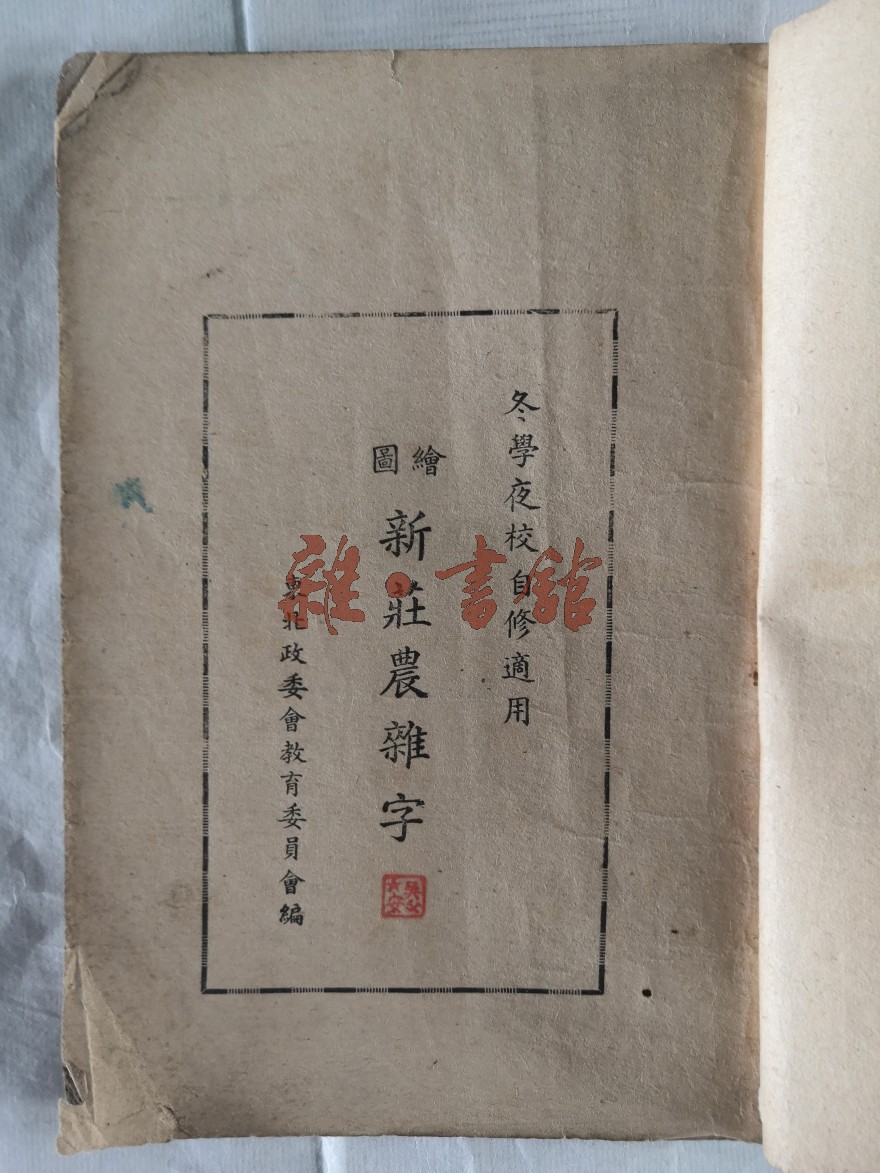 冬學夜校自修適用
繪圖
新莊農雜字
東北政委會教育委員會編
雜·書館